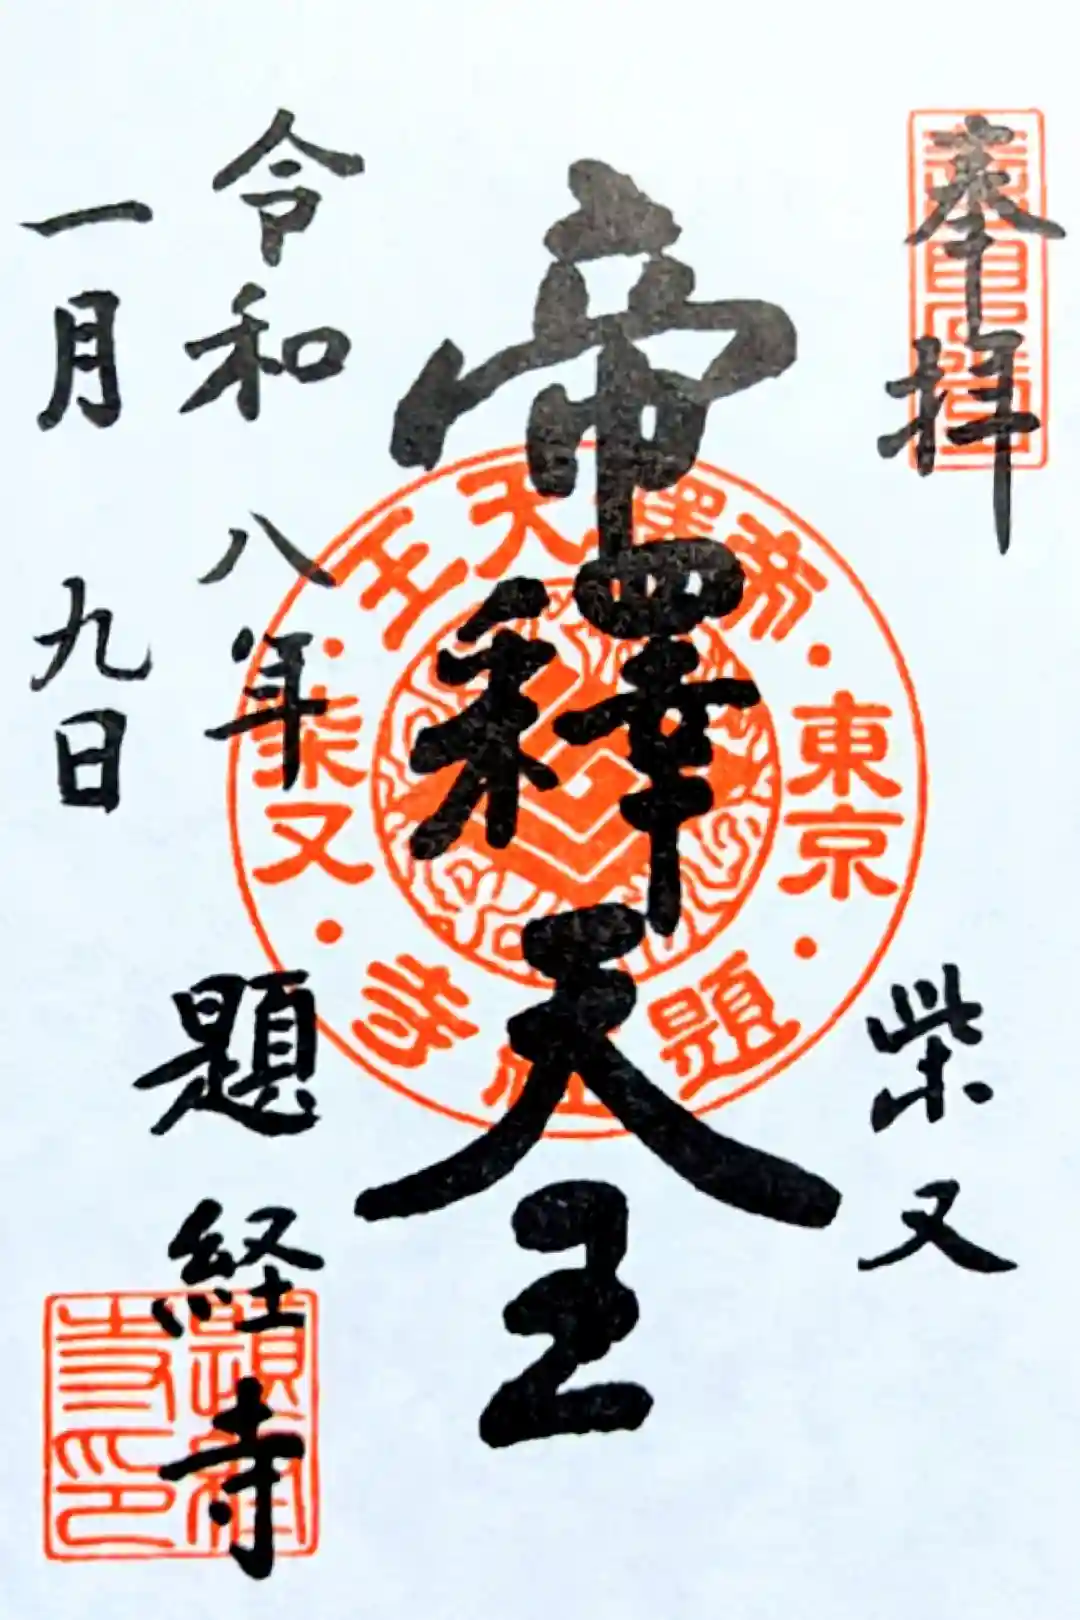 奉拝
柴又
帝釋天王
令和八年
一月九日
題経寺
帝釋天王
東京
柴又
題経寺
題経寺印